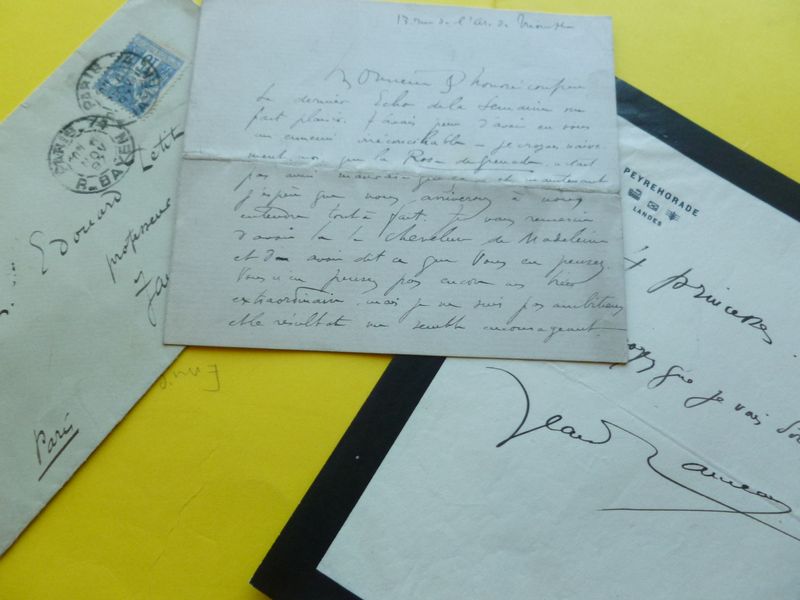 13 rue de l'Arc de Triomphe
Monsieur & honoré confrère
Le dernier Echo de la Semaine me
fait plaisir. J'avais peur d'avoir en vous
un ennemi irréconciliable – je croyais naïve
ment, moi que la Rose de Grenade n'était
pas aussi mauvaise que et maintenant
j'espère que nous arriverons à nous
entendre tout à fait. Je vous remercie
d'avoir lu la Chevelure de Madeleine
et d'en avoir dit ce que vous en pensez.
Vous n'en pensez pas encore un bien
extraordinaire, mais je ne suis pas ambitieux
et le résultat me semble encourageant.
PARIS
PARIS
Edouard Petit
professeur
Paris
PEYREHORADE
LANDES
princesse
que je vais
Jean Rameau